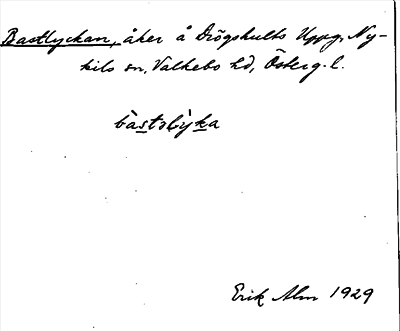 Bastlyckan, åker å Drögshults Uppg, Ny-
kils sn, Valkebo hd, Österg. l.
bàstslỳka
Erik Alm 1929